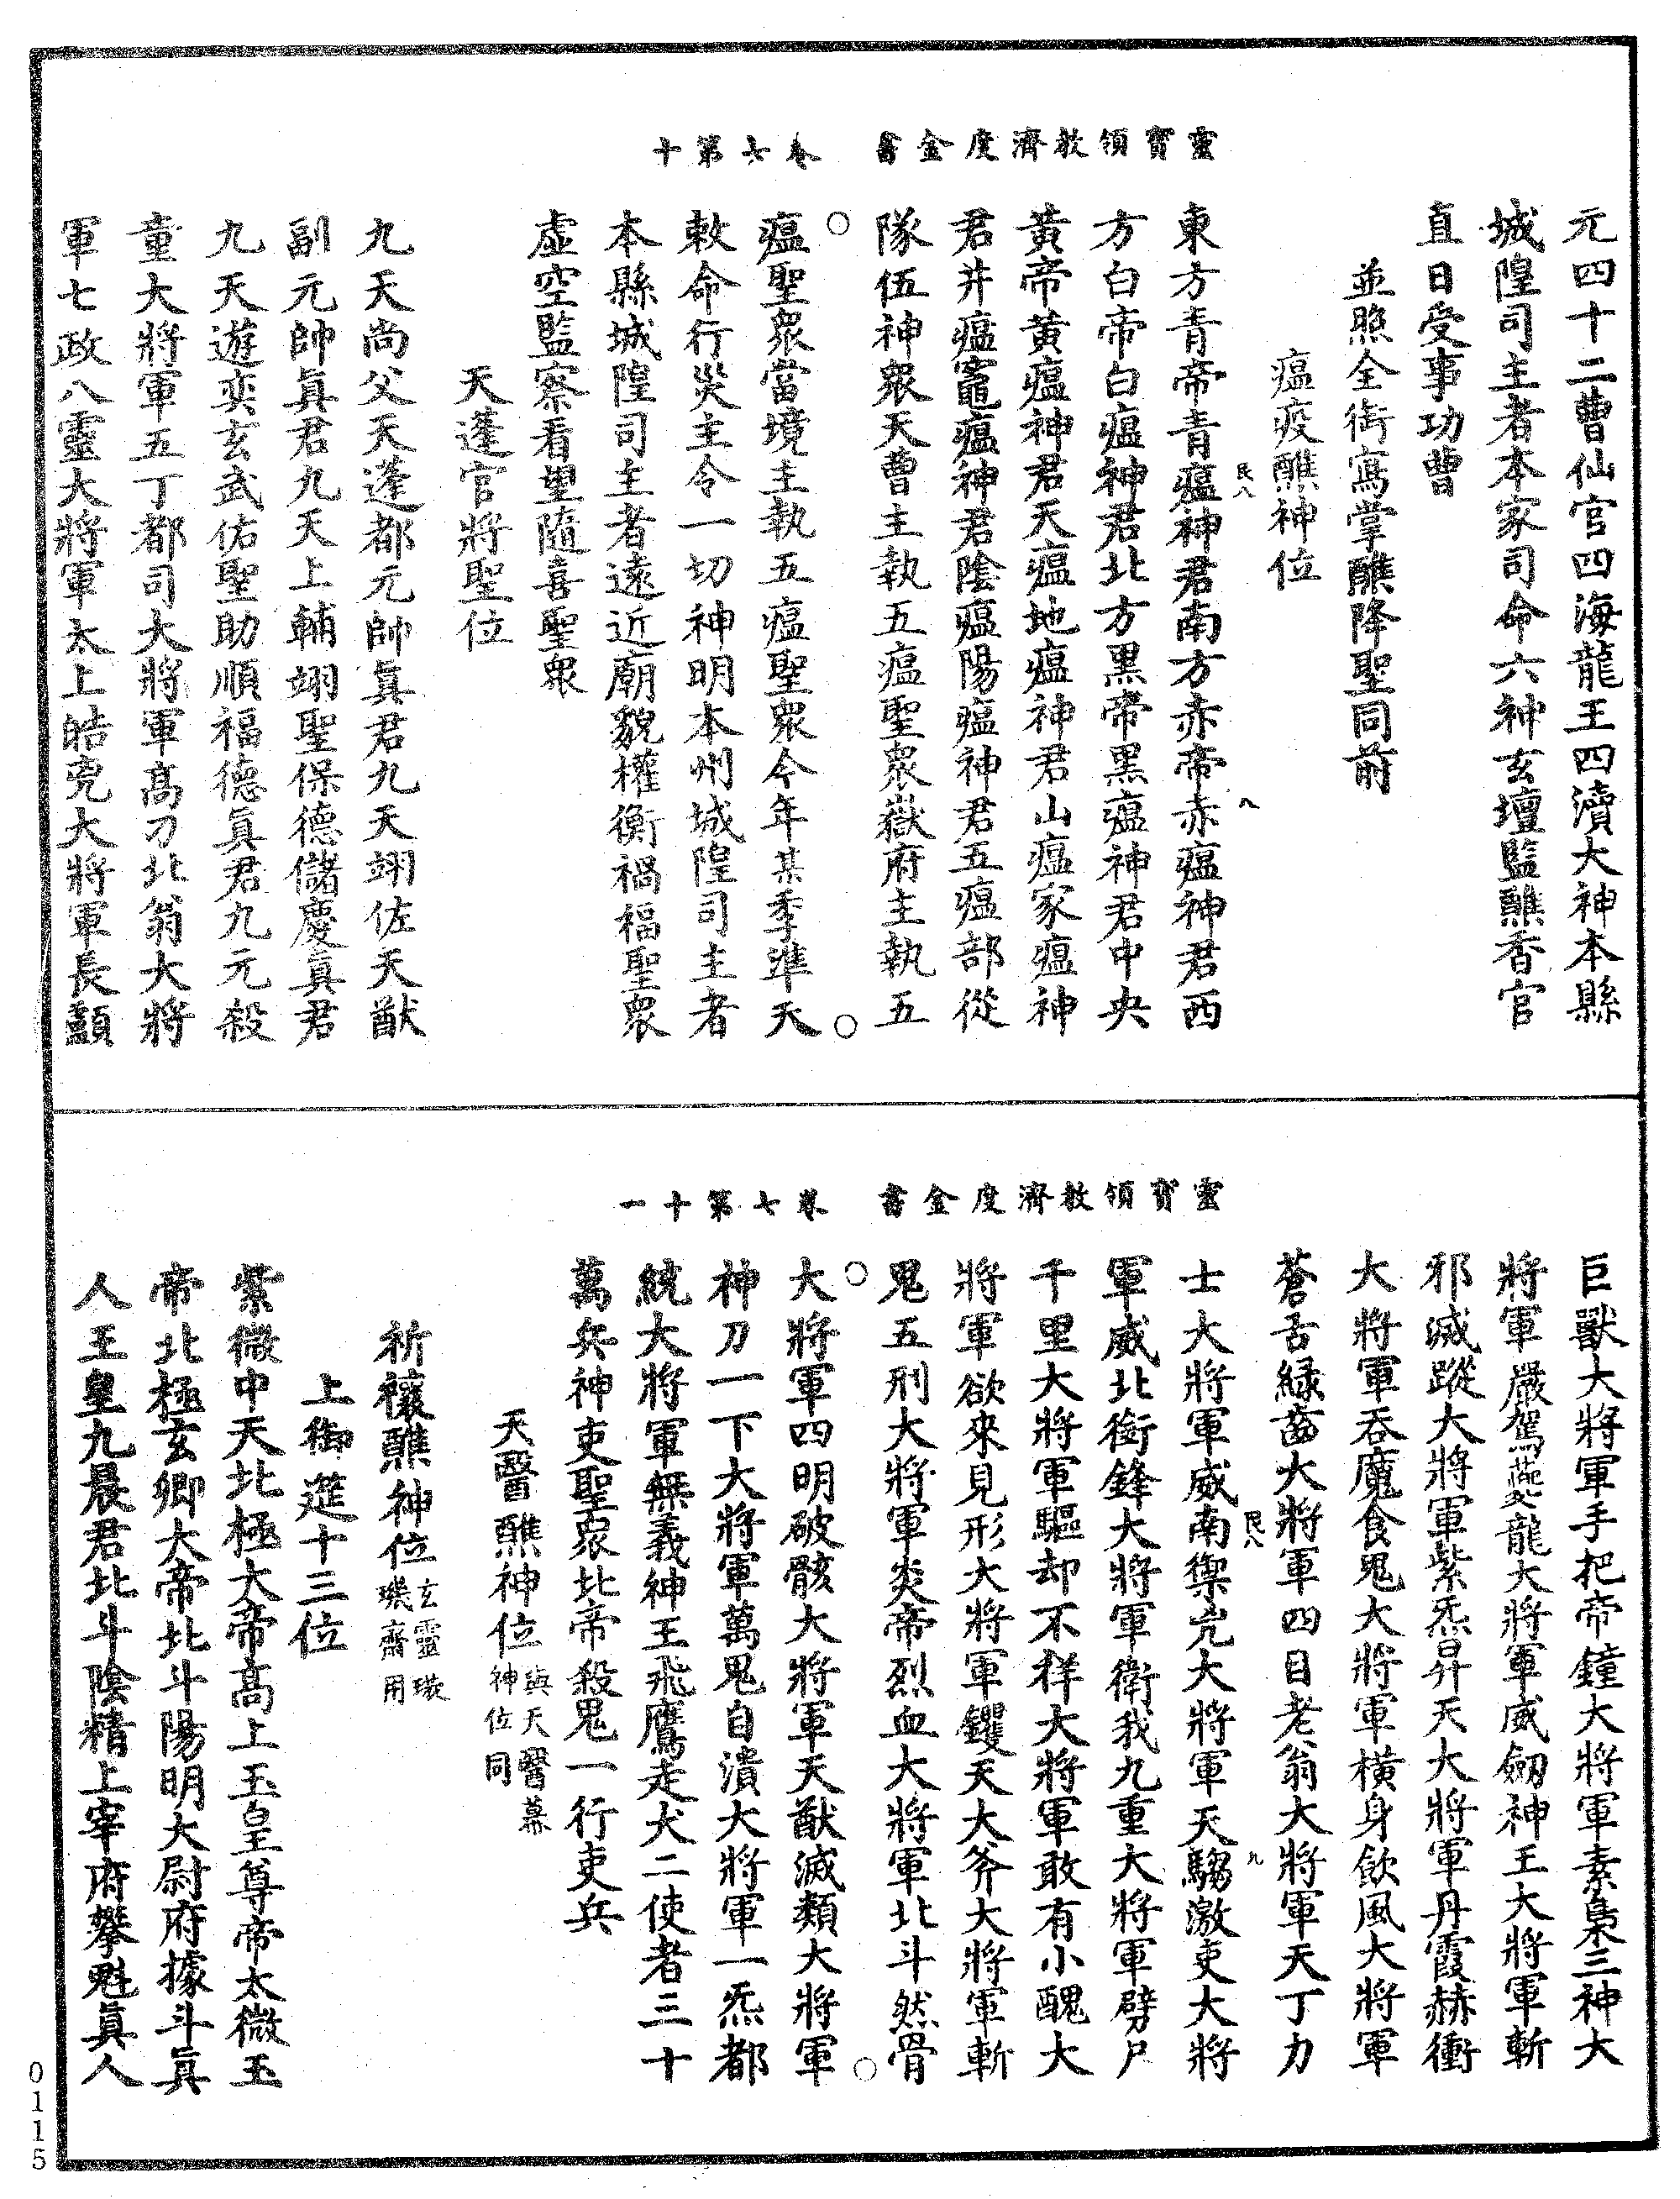 靈寶領教濟度金書　卷七第十
元四十二曹仙官四海龍王四瀆大神本縣
城隍司主者本家司命六神玄壇監醮香官
直日受事功曹
並照全銜寫掌醮降聖同前
瘟疫醮神位
東方青帝青瘟神君南方赤帝赤瘟神君西
民八
八
方白帝白瘟神君北方黑帝黑瘟神君中央
黃帝黃瘟神君天瘟地瘟神君山瘟家瘟神
君井瘟竈瘟神君陰瘟陽瘟神君五瘟部從
隊伍神衆天曹主執五瘟聖衆嶽府主執五
○　○
瘟聖衆當境主執五瘟聖衆今年某季準天
敕命行災主令一切神明本州城隍司主者
本縣城隍司主者遠近廟貌權衡禍福聖衆
虛空監察看望隨喜聖衆
天蓬官將聖位
九天尚父天蓬都元帥眞君九天翊佐天猷
副元帥眞君九天上輔翊聖保德儲慶眞君
九天遊奕玄武佑聖助順福德眞君九元殺
童大將軍五丁都司大將軍高刀北翁大將
軍七政八靈大將軍太上皓兇大將軍長顱
靈寶領教濟度金書　卷七第十一
巨獸大將軍手把帝鐘大將軍素梟三神大
將軍嚴駕夔龍大將軍威劒神王大將軍斬
邪滅蹤大將軍紫炁昇天大將軍丹霞赫衝
大將軍吞魔食鬼大將軍橫身飲風大將軍
蒼舌綠齒大將軍四目老翁大將軍天丁力
民八
九
士大將軍威南禦兇大將軍天騶激吏大將
軍威北銜鋒大將軍衛我九重大將軍劈尸
千里大將軍驅却不祥大將軍敢有小醜大
將軍欲來見形大將軍钁天大斧大將軍斬
鬼五刑大將軍炎帝烈血大將軍北斗然骨
○　○
大將軍四明破骸大將軍天猷滅類大將軍
神刀一下大將軍萬鬼自潰大將軍一炁都
統大將軍無義神王飛鷹走犬二使者三十
萬兵神吏聖衆北帝殺鬼一行吏兵
天醫醮神位與天醫幕神位同
祈禳醮神位玄靈璇璣齋用
上御筵十三位
紫微中天北極大帝高上玉皇尊帝太微玉
帝北極玄卿大帝北斗陽明大尉府據斗眞
人王皇九晨君北斗陰精上宰府攀魁眞人
0115